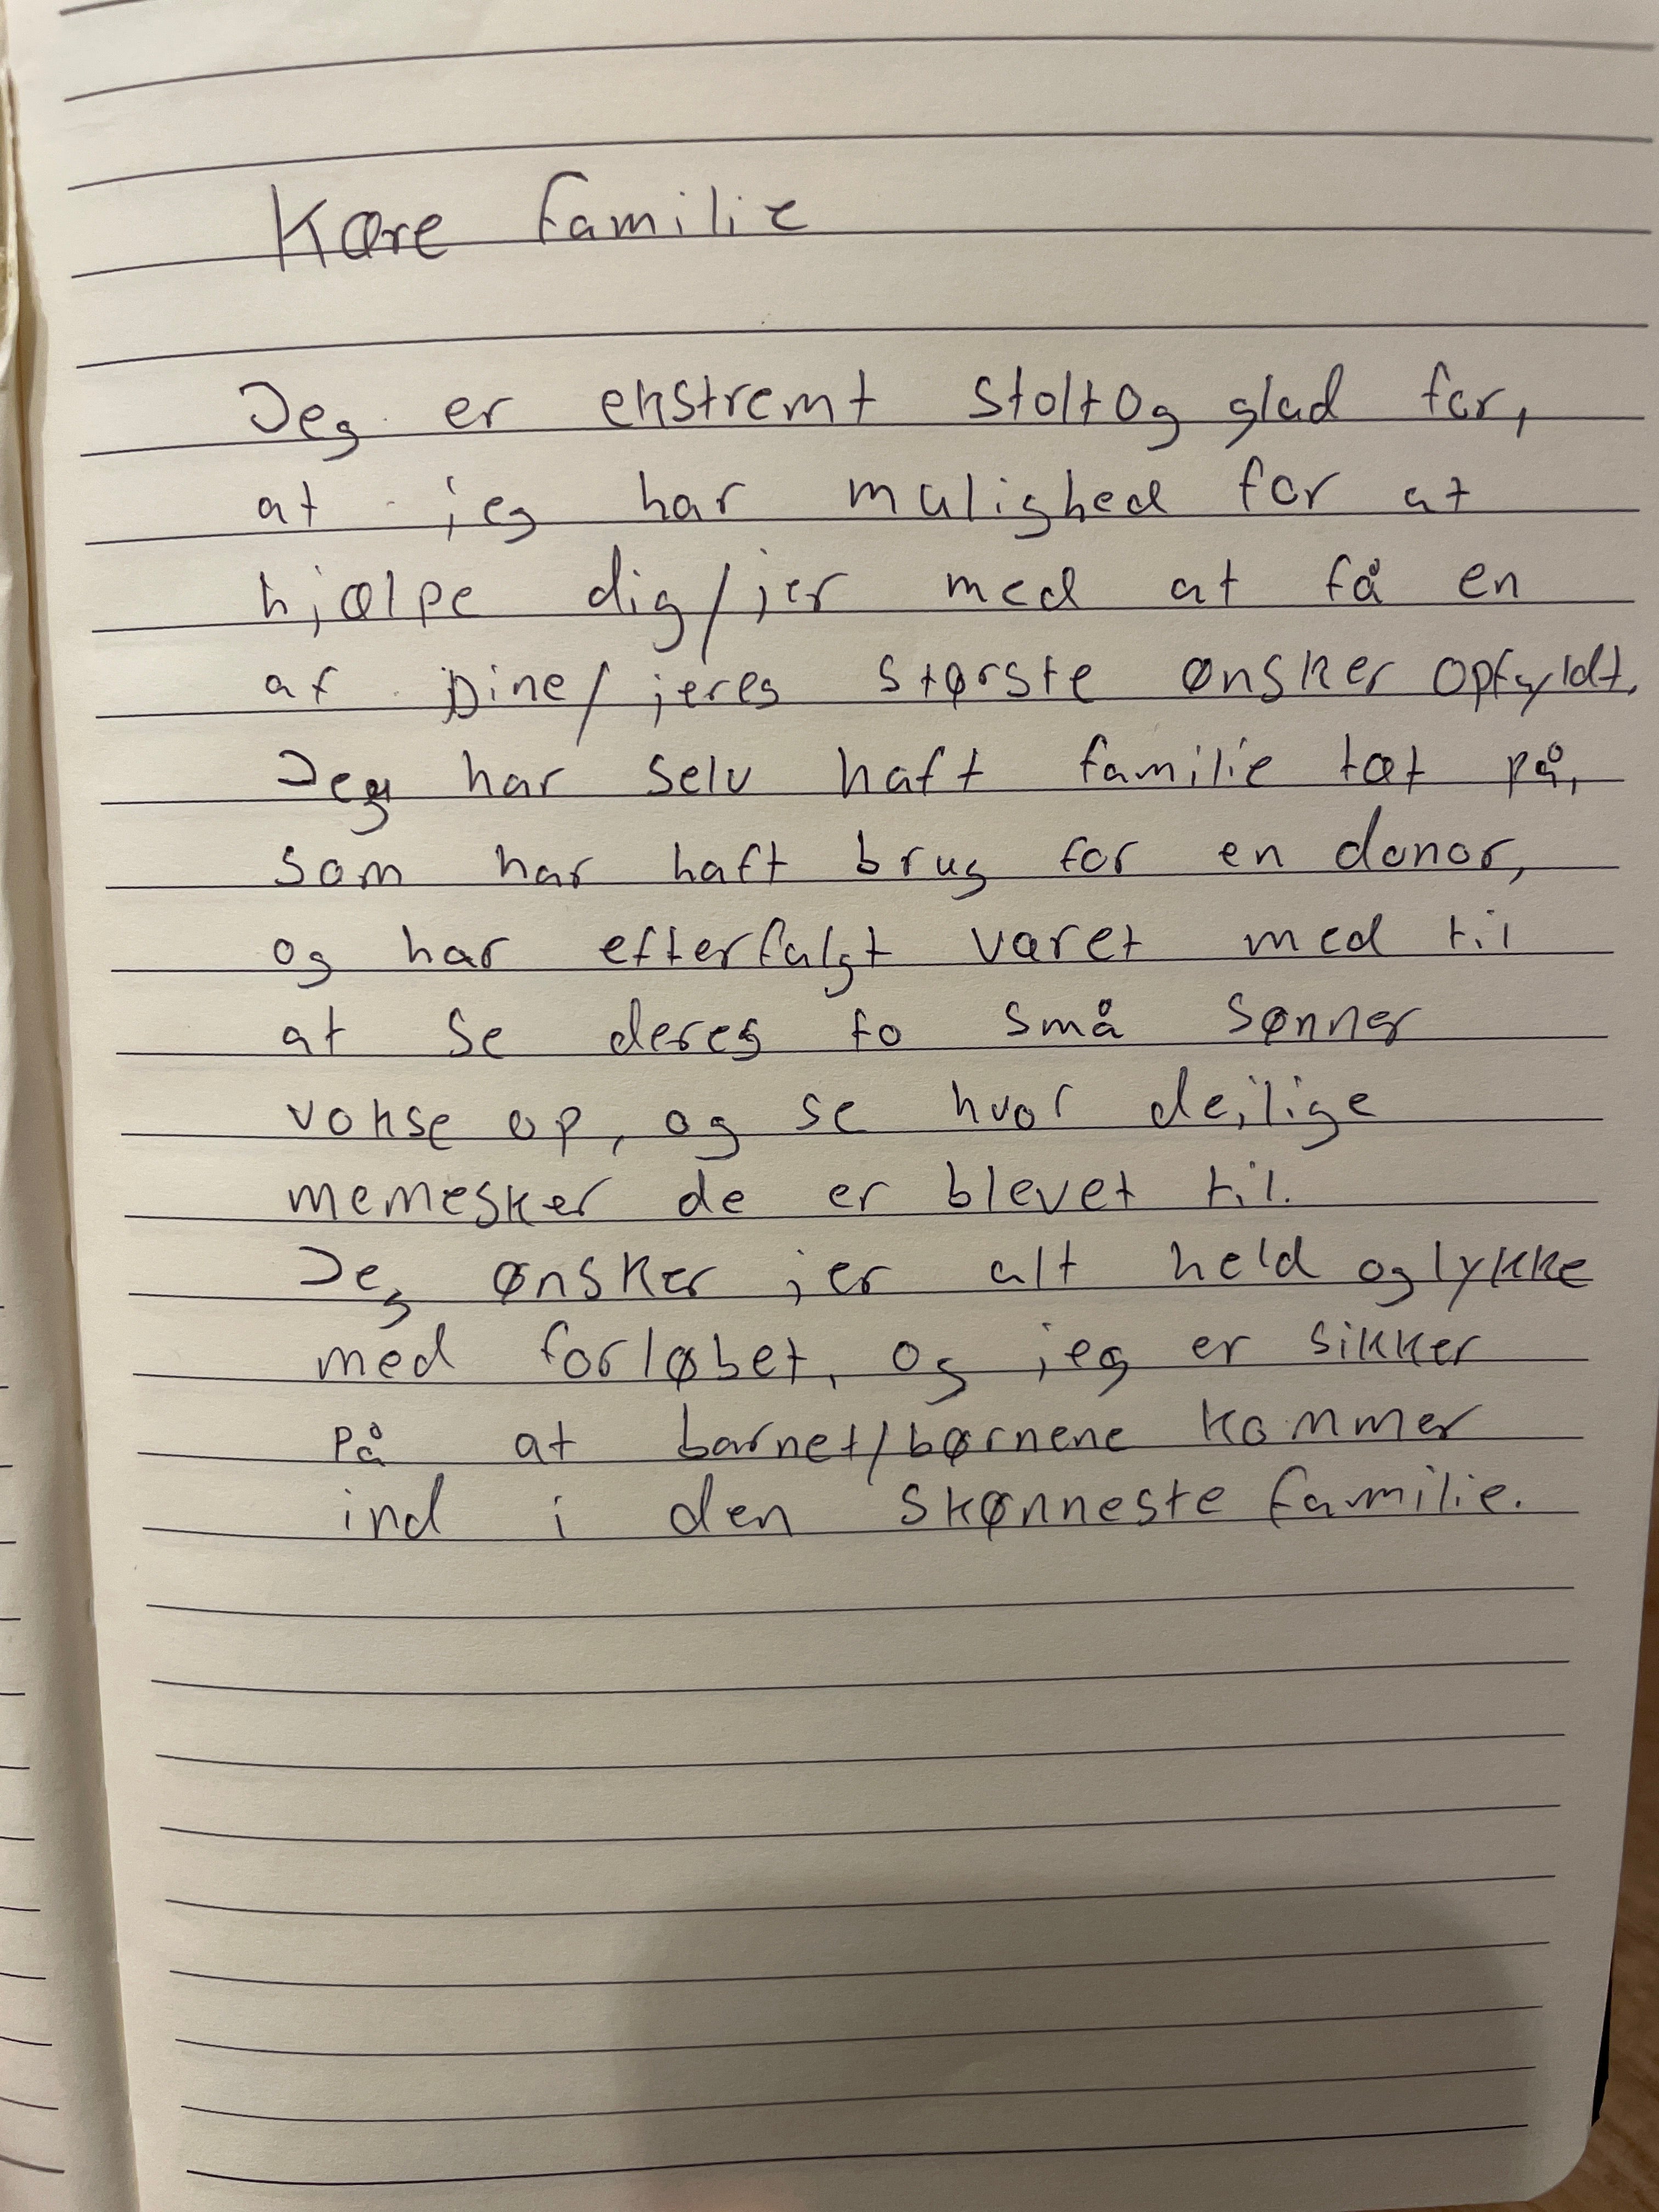 Kære familie
Jeg er ekstremt stolt og glad for,
at jeg har mulighed for at
hjælpe dig/jer med at få en
af Dine/jeres største ønsker opfyldt.
Jeg har selv haft familie tæt på,
som har haft brug for en donor,
og har efterfulgt været med til
at se deres to små sønner
vokse op, og se hvor dejlige
memesker de er blevet til.
Jeg ønsker jer alt held og lykke
med forløbet, og jeg er sikker
på at barnet/børnene kommer
ind i den skønneste familie.